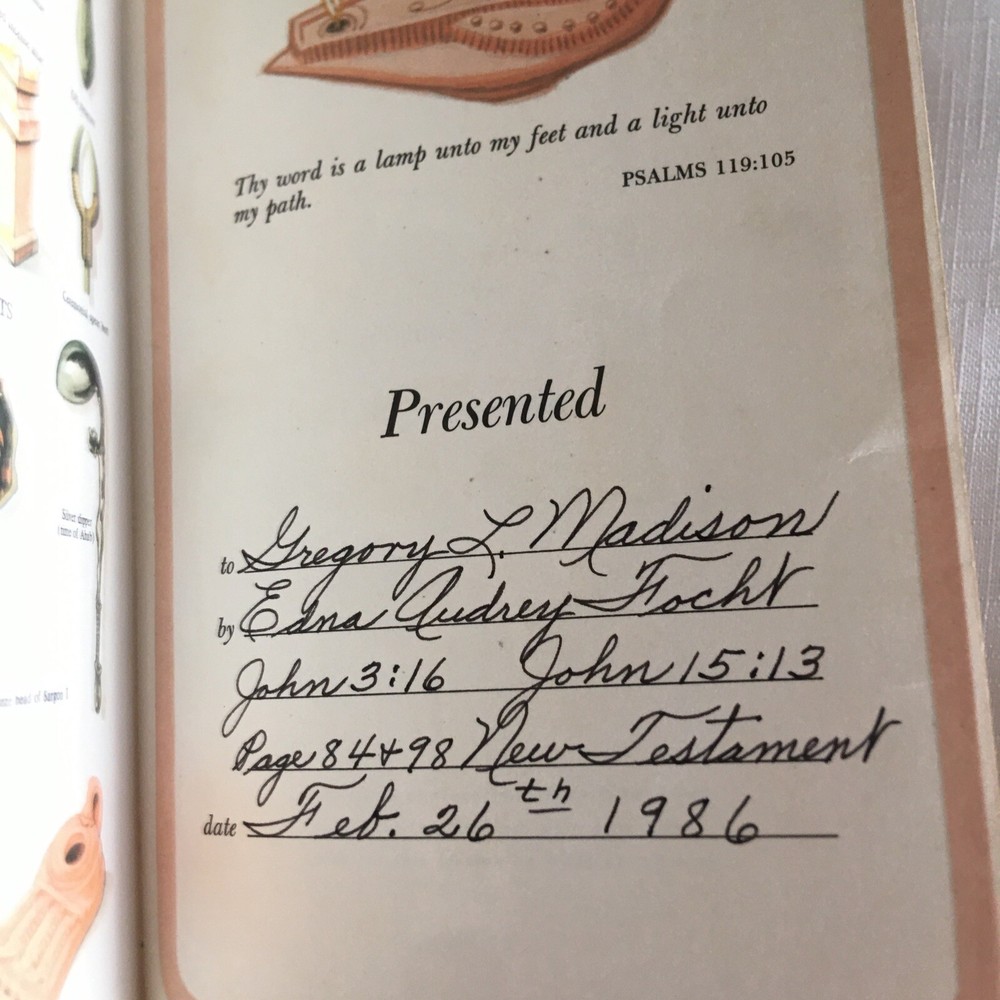 Thy word is a lamp unto my feet and a light unto
my path.
PSALMS 119:105
Presented
to Gregory L. Madison
by Edna Audrey Focht
John 3:16 John 15:13
Page 84 + 98 New Testament
date Feb. 26th 1986
Silver dipper
(time of Ahab)
head of Sargon I